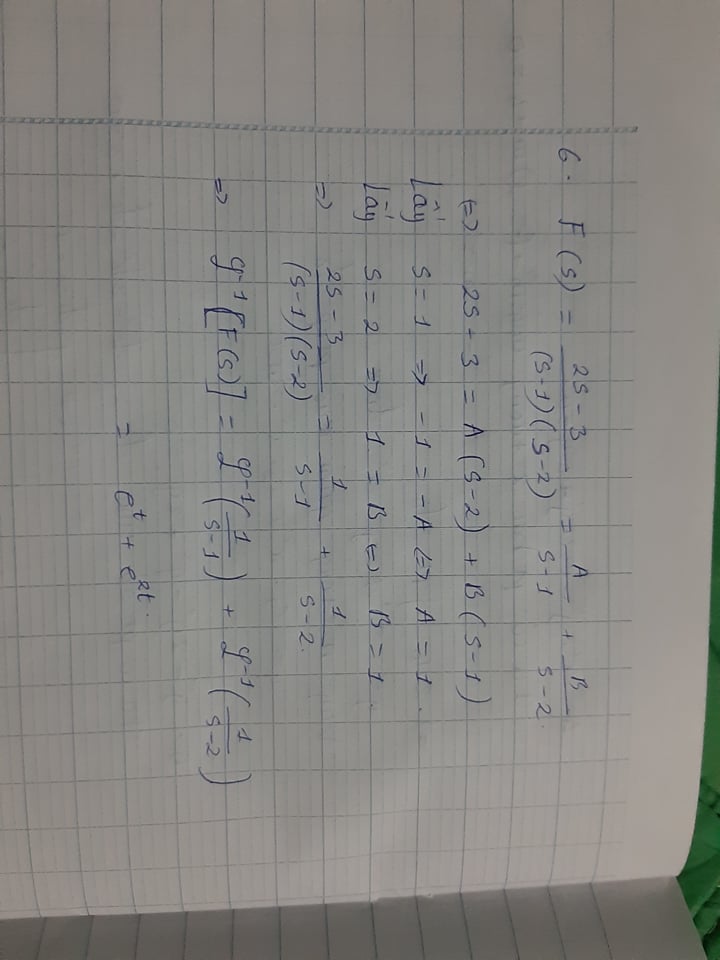 6. F(s) = \frac{2s-3}{(s-1)(s-2)} = \frac{A}{s-1} + \frac{B}{s-2}.
⇔ 2s - 3 = A(s-2) + B(s-1)
Lấy s = 1 ⇒ -1 = -A ⇔ A = 1.
Lấy s = 2 ⇒ 1 = B ⇔ B = 1.
⇒ \frac{2s-3}{(s-1)(s-2)} = \frac{1}{s-1} + \frac{1}{s-2}.
⇒ ℒ^{-1}[F(s)] = ℒ^{-1}(\frac{1}{s-1}) + ℒ^{-1}(\frac{1}{s-2})
= e^{t} + e^{2t}.